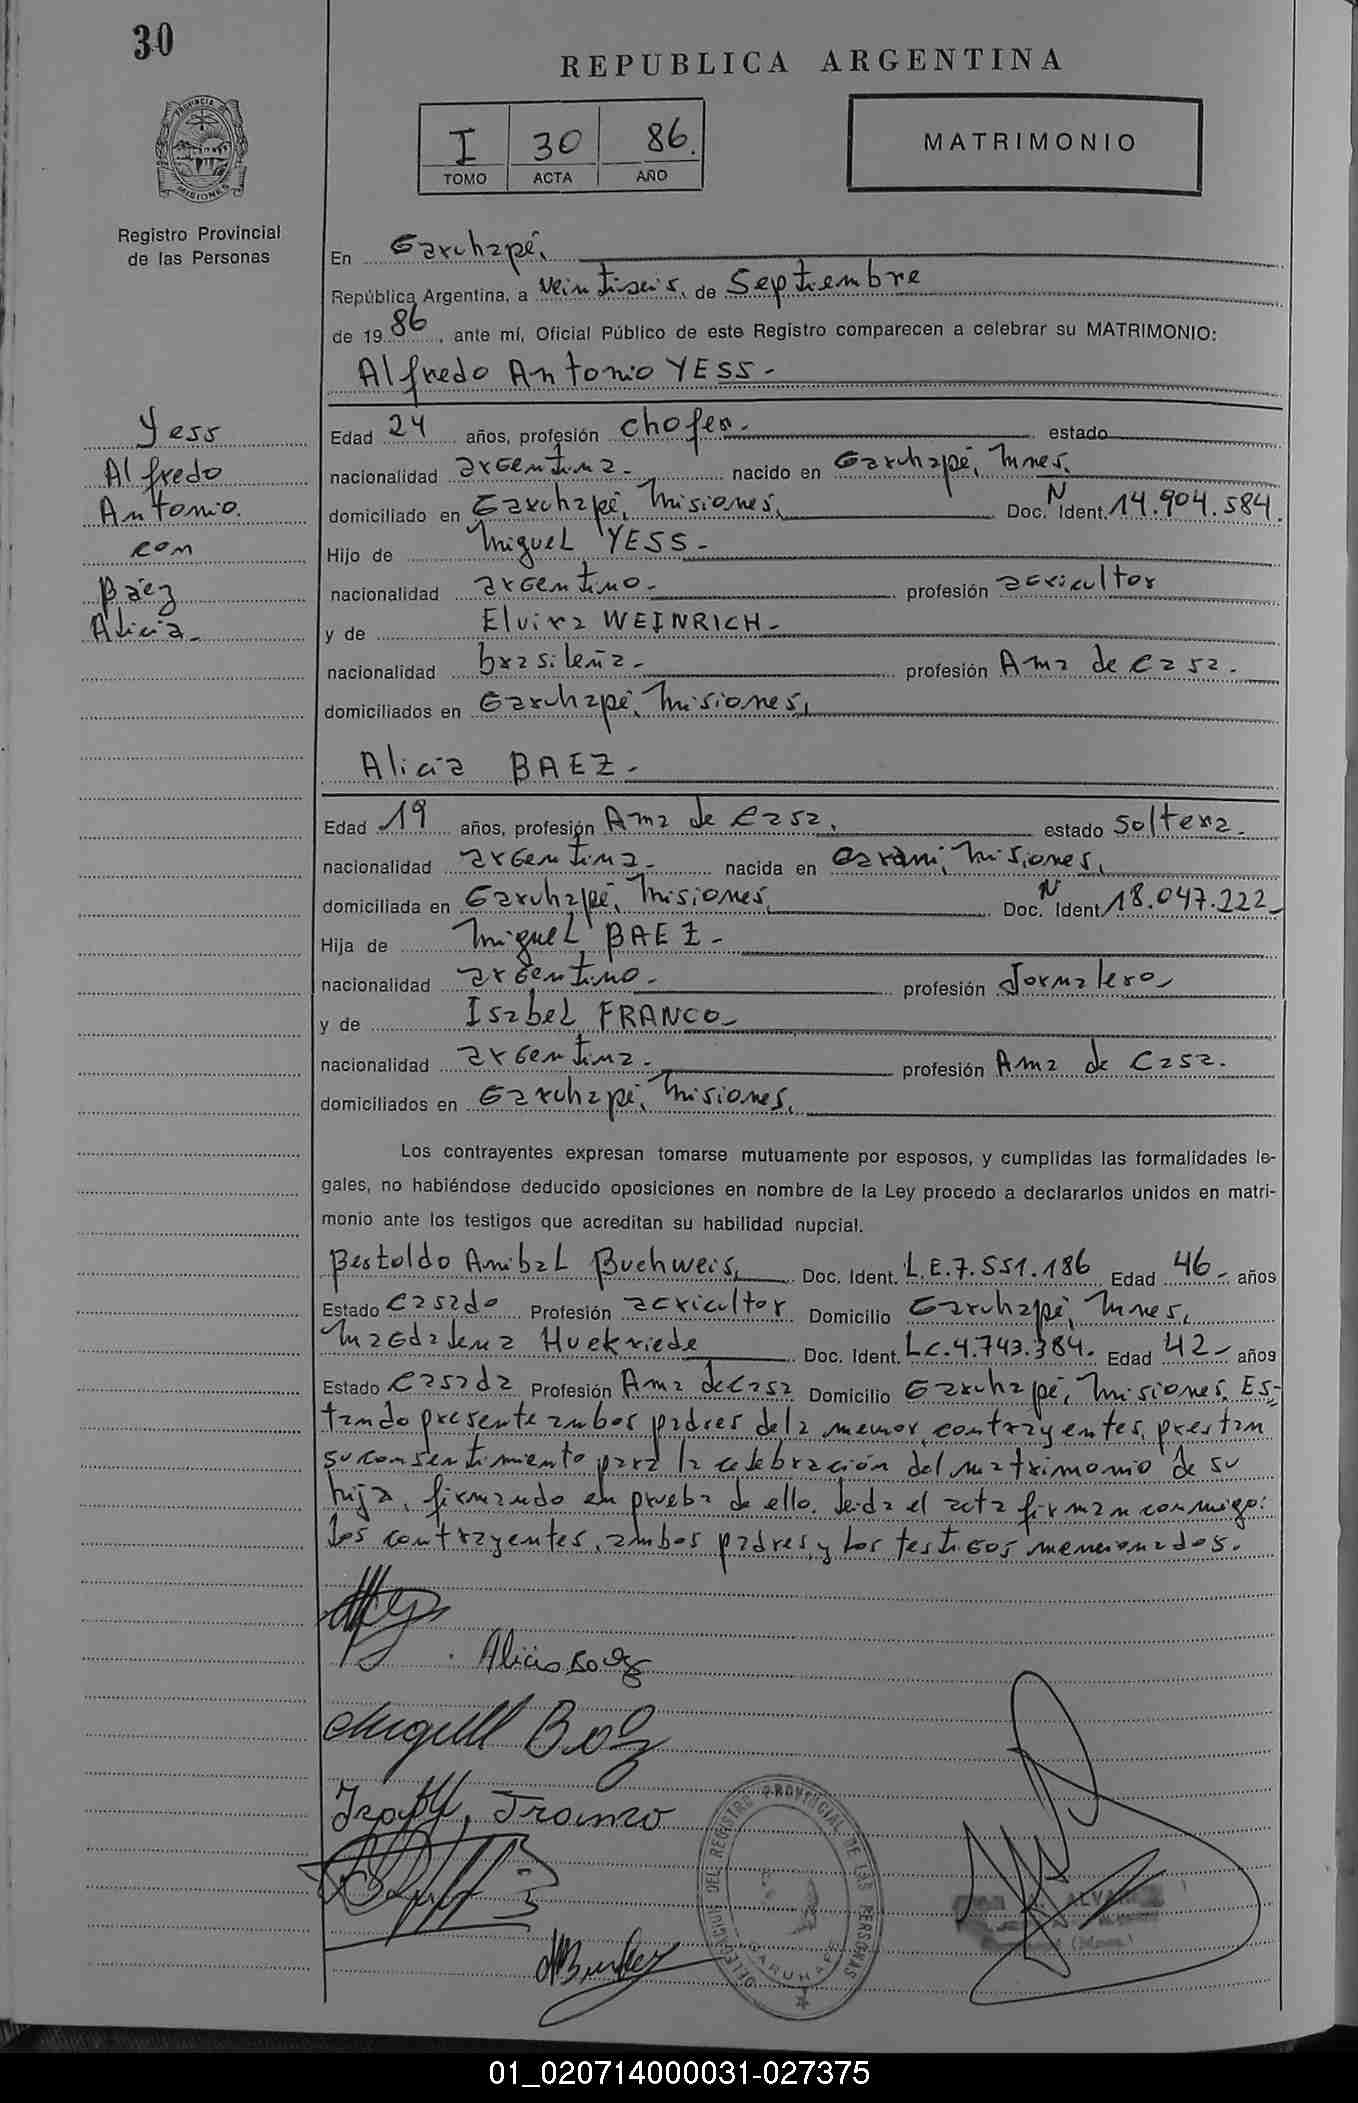 30
REPUBLICA ARGENTINA
I 30 86.
TOMO ACTA AÑO
MATRIMONIO
PROVINCIA DE MISIONES
Registro Provincial
de las Personas
En Garuhapé,
República Argentina, a veintiseis, de Septiembre
de 1986, ante mí, Oficial Público de este Registro comparecen a celebrar su MATRIMONIO:
Alfredo Antonio YESS-
Yess
Alfredo
Antonio.
con
Báez
Alicia-
Edad 24 años, profesión chofer. estado
nacionalidad argentina- nacido en Garuhapé, Mnes,
domiciliado en Garuhapé, Misiones, Doc. N Ident. 14.904.584.
Hijo de Miguel YESS-
nacionalidad argentino- profesión agricultor
y de Elvira WEINRICH-
nacionalidad brasileña- profesión Ama de casa-
domiciliados en Garuhapé, Misiones,
Alicia BAEZ-
Edad 19 años, profesión Ama de casa, estado soltera-
nacionalidad argentina- nacida en Misiones,
domiciliada en Garuhapé, Misiones, Doc. N Ident 18.047.222-
Hija de Miguel BAEZ-
nacionalidad argentino- profesión Jornalero-
y de Isabel FRANCO-
nacionalidad argentina- profesión Ama de casa-
domiciliados en Garuhapé, Misiones,
Los contrayentes expresan tomarse mutuamente por esposos, y cumplidas las formalidades le-
gales, no habiéndose deducido oposiciones en nombre de la Ley procedo a declararlos unidos en matri-
monio ante los testigos que acreditan su habilidad nupcial.
Bertoldo Anibal Buchweis, Doc. Ident. L.E.7.551.186 Edad 46- años
Estado casado Profesión agricultor Domicilio Garuhapé, Mnes,
Magdalena Huekriede Doc. Ident. L.C.4.743.384. Edad 42- años
Estado casada Profesión Ama de casa Domicilio Garuhapé, Misiones. Es-
tando presente ambos padres de la menor contrayentes, prestan
su consentimiento para la celebración del matrimonio de su
hija, firmando en prueba de ello. Leida el acta firman conmigo:
los contrayentes, ambos padres y los testigos mencionados.
Alicia Baez
Miguel Baez
Franco
DELEGACION DEL REGISTRO PROVINCIAL DE LAS PERSONAS
GARUHAPE
01_020714000031-027375